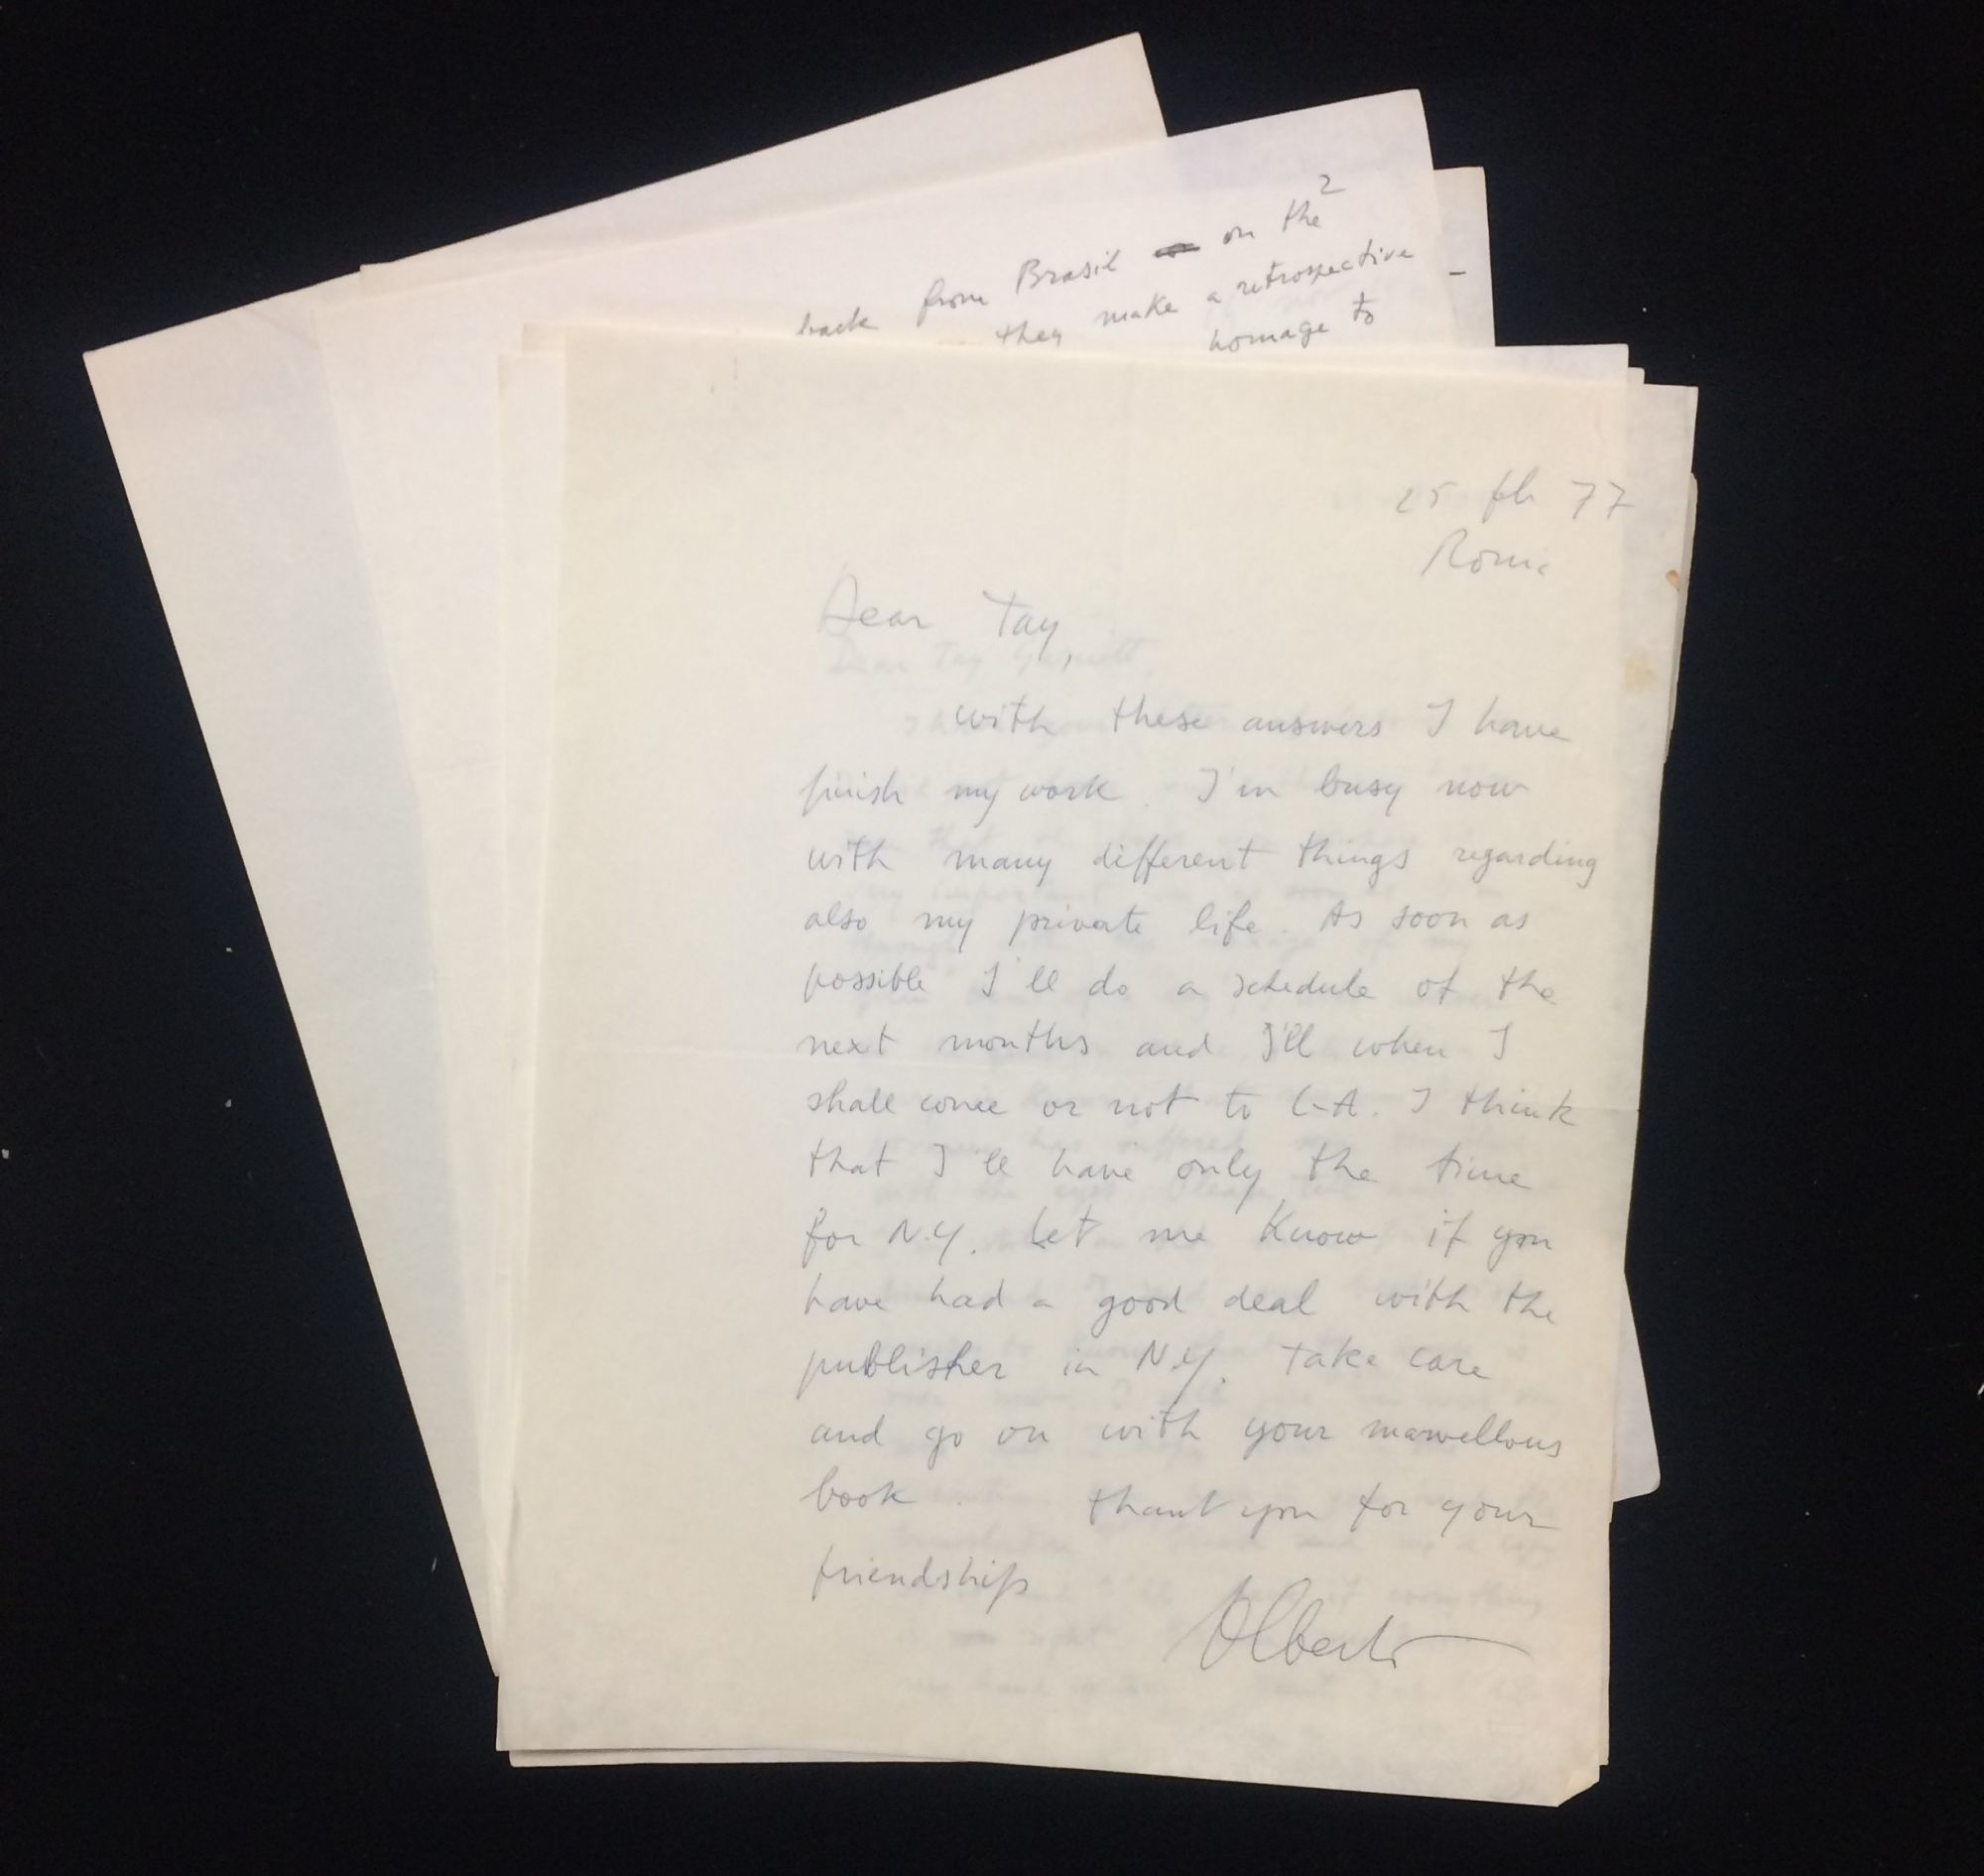 2
back from Brasil on the
they make a retrospective
homage to
25 fb 77
Roma
Dear Tay,
Dear Tay Garnett,
with these answers I have
finish my work. I'm busy now
with many different things regarding
also my private life. As soon as
possible I'll do a schedule of the
next months and I'll when I
shall come or not to L.A. I think
that I'll have only the time
for N.Y. Let me know if you
have had a good deal with the
publisher in N.Y. Take care
and go on with your marvellous
book. Thank you for your
friendship
Alberto